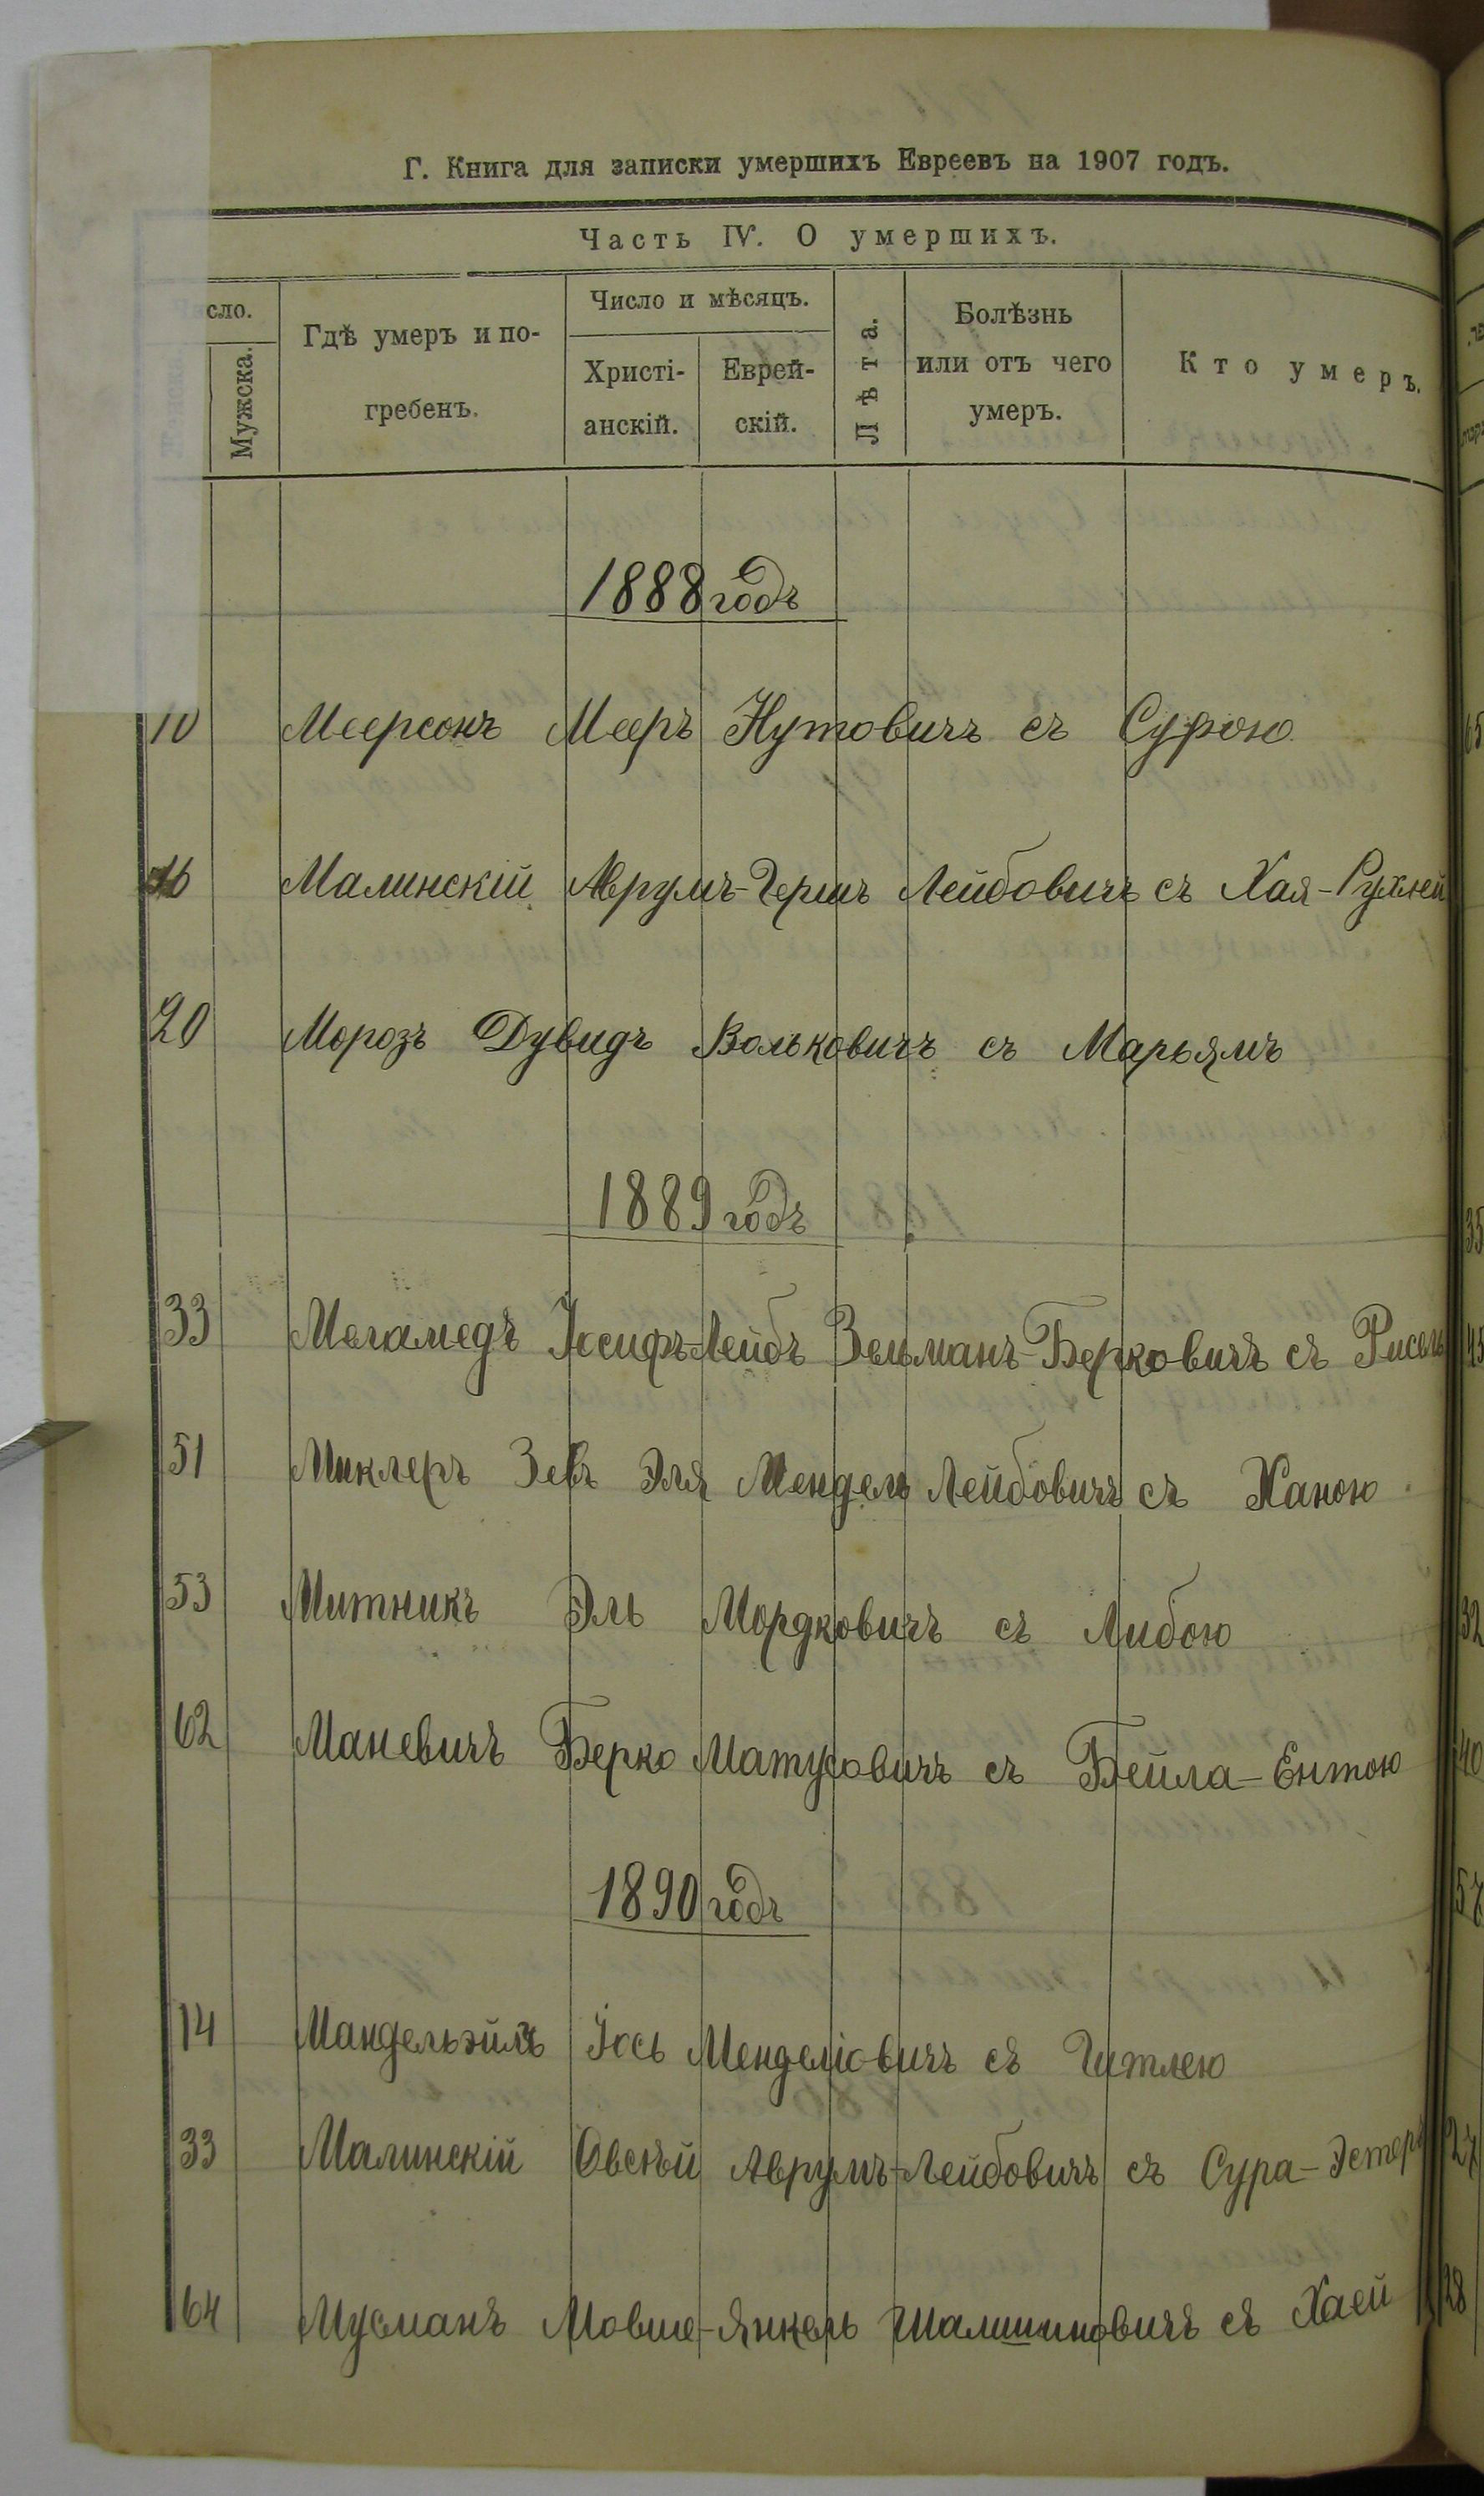 Г. Книга для записки умершихъ Евреевъ на 1907 годъ.
Часть IV. О умершихъ.
сло.
Мужска.
Гдѣ умеръ и по-
гребенъ.
Число и мѣсяцъ.
Христі-
анскій.
Еврей-
скій.
Лѣта.
Болѣзнь
или отъ чего
умеръ.
Кто умеръ.
1888 годъ
10 Меерсонъ Мееръ Нутовичъ съ Сурою
16 Малинскій Аврумъ-Гершъ Лейбовичъ съ Хая-Рухлей
20 Морозъ Дувидъ Вольковичъ съ Марьямъ
1889 годъ
33 Меламедъ Іосифъ-Лейбъ Зельманъ-Берковичъ съ
51 Миклеръ Зевъ Эля Мендель Лейбовичъ съ Ханою
53 Митникъ Эль Мордковичъ съ Либою
62 Маневичъ Берко Матусовичъ съ Бейла-Ентою
1890 годъ
14 Іось Менделіовичъ съ Гитлею
33 Малинскій Овсѣй Аврумъ-Лейбовичъ съ Сура-
64 Мусманъ Мовше-Янкель съ Хаей